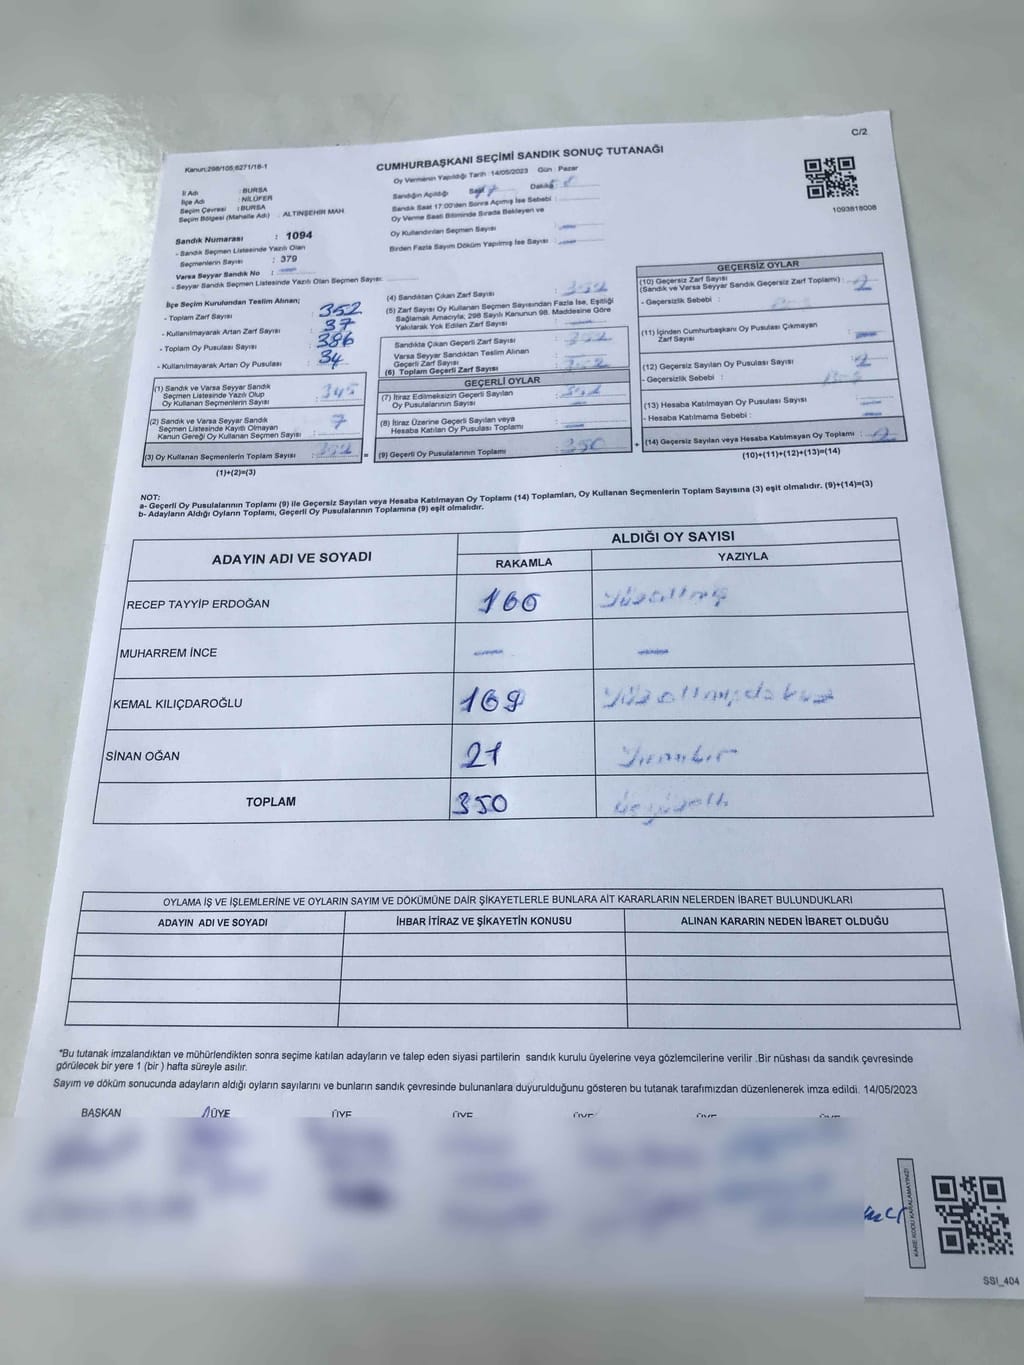 C/2
Kanun:298/105;6271/18-1
CUMHURBAŞKANI SEÇİMİ SANDIK SONUÇ TUTANAĞI
Oy Vermenin Yapıldığı Tarih :14/05/2023 Gün : Pazar
İl Adı : BURSA
İlçe Adı : NİLÜFER
Seçim Çevresi : BURSA
Seçim Bölgesi (Mahalle Adı) : ALTINŞEHİR MAH.
Sandık Numarası : 1094
- Sandık Seçmen Listesinde Yazılı Olan
Seçmenlerin Sayısı : 379
Varsa Seyyar Sandık No :
- Seyyar Sandık Seçmen Listesinde Yazılı Olan Seçmen Sayısı:
Sandığın Açıldığı Saat Dakika
Sandık Saat 17:00'den Sonra Açılmış İse Sebebi :
Oy Verme Saati Bitiminde Sırada Bekleyen ve
Oy Kullandırılan Seçmen Sayısı
Birden Fazla Sayım Döküm Yapılmış İse Sayısı
1093818008
İlçe Seçim Kurulundan Teslim Alınan;
- Toplam Zarf Sayısı : 352
- Kullanılmayarak Artan Zarf Sayısı : 37
- Toplam Oy Pusulası Sayısı : 386
- Kullanılmayarak Artan Oy Pusulası : 34
(1) Sandık ve Varsa Seyyar Sandık
Seçmen Listesinde Yazılı Olup
Oy Kullanan Seçmenlerin Sayısı : 345
(2) Sandık ve Varsa Seyyar Sandık
Seçmen Listesinde Kayıtlı Olmayan
Kanun Gereği Oy Kullanan Seçmen Sayısı : 7
(3) Oy Kullanan Seçmenlerin Toplam Sayısı : 352
(1)+(2)=(3)
=
(4) Sandıktan Çıkan Zarf Sayısı : 352
(5) Zarf Sayısı Oy Kullanan Seçmen Sayısından Fazla İse, Eşitliği
Sağlamak Amacıyla, 298 Sayılı Kanunun 98. Maddesine Göre
Yakılarak Yok Edilen Zarf Sayısı :
Sandıkta Çıkan Geçerli Zarf Sayısı : 352
Varsa Seyyar Sandıktan Teslim Alınan
Geçerli Zarf Sayısı :
(6) Toplam Geçerli Zarf Sayısı : 352
GEÇERLİ OYLAR
(7) İtiraz Edilmeksizin Geçerli Sayılan
Oy Pusulalarının Sayısı :
(8) İtiraz Üzerine Geçerli Sayılan veya
Hesaba Katılan Oy Pusulası Toplamı :
(9) Geçerli Oy Pusulalarının Toplamı : 350
+
GEÇERSİZ OYLAR
(10) Geçersiz Zarf Sayısı
(Sandık ve Varsa Seyyar Sandık Geçersiz Zarf Toplamı) :
- Geçersizlik Sebebi :
(11) İçinden Cumhurbaşkanı Oy Pusulası Çıkmayan
Zarf Sayısı :
(12) Geçersiz Sayılan Oy Pusulası Sayısı : 2
- Geçersizlik Sebebi :
(13) Hesaba Katılmayan Oy Pusulası Sayısı :
- Hesaba Katılmama Sebebi :
(14) Geçersiz Sayılan veya Hesaba Katılmayan Oy Toplamı : 2
(10)+(11)+(12)+(13)=(14)
NOT:
a- Geçerli Oy Pusulalarının Toplamı (9) ile Geçersiz Sayılan veya Hesaba Katılmayan Oy Toplamı (14) Toplamları, Oy Kullanan Seçmenlerin Toplam Sayısına (3) eşit olmalıdır. (9)+(14)=(3)
b- Adayların Aldığı Oyların Toplamı, Geçerli Oy Pusulalarının Toplamına (9) eşit olmalıdır.
ADAYIN ADI VE SOYADI
ALDIĞI OY SAYISI
RAKAMLA YAZIYLA
RECEP TAYYİP ERDOĞAN 160 Yüzaltmış
MUHARREM İNCE
KEMAL KILIÇDAROĞLU 169 Yüzaltmışdokuz
SİNAN OĞAN 21 Yirmibir
TOPLAM 350 üçyüzelli
OYLAMA İŞ VE İŞLEMLERİNE VE OYLARIN SAYIM VE DÖKÜMÜNE DAİR ŞİKAYETLERLE BUNLARA AİT KARARLARIN NELERDEN İBARET BULUNDUKLARI
ADAYIN ADI VE SOYADI İHBAR İTİRAZ VE ŞİKAYETİN KONUSU ALINAN KARARIN NEDEN İBARET OLDUĞU
*Bu tutanak imzalandıktan ve mühürlendikten sonra seçime katılan adayların ve talep eden siyasi partilerin sandık kurulu üyelerine veya gözlemcilerine verilir .Bir nüshası da sandık çevresinde
görülecek bir yere 1 (bir ) hafta süreyle asılır.
Sayım ve döküm sonucunda adayların aldığı oyların sayılarını ve bunların sandık çevresinde bulunanlara duyurulduğunu gösteren bu tutanak tarafımızdan düzenlenerek imza edildi. 14/05/2023
BAŞKAN ÜYE ÜYE ÜYE ÜYE ÜYE ÜYE
KARE KODU KARALAMAYINIZ!
SSI_404